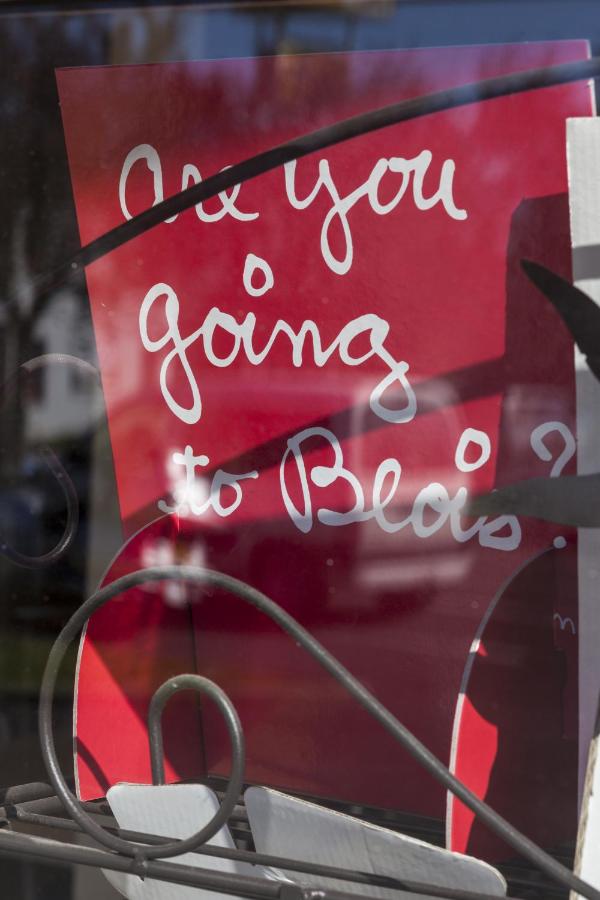 Are you
going
to Blois?